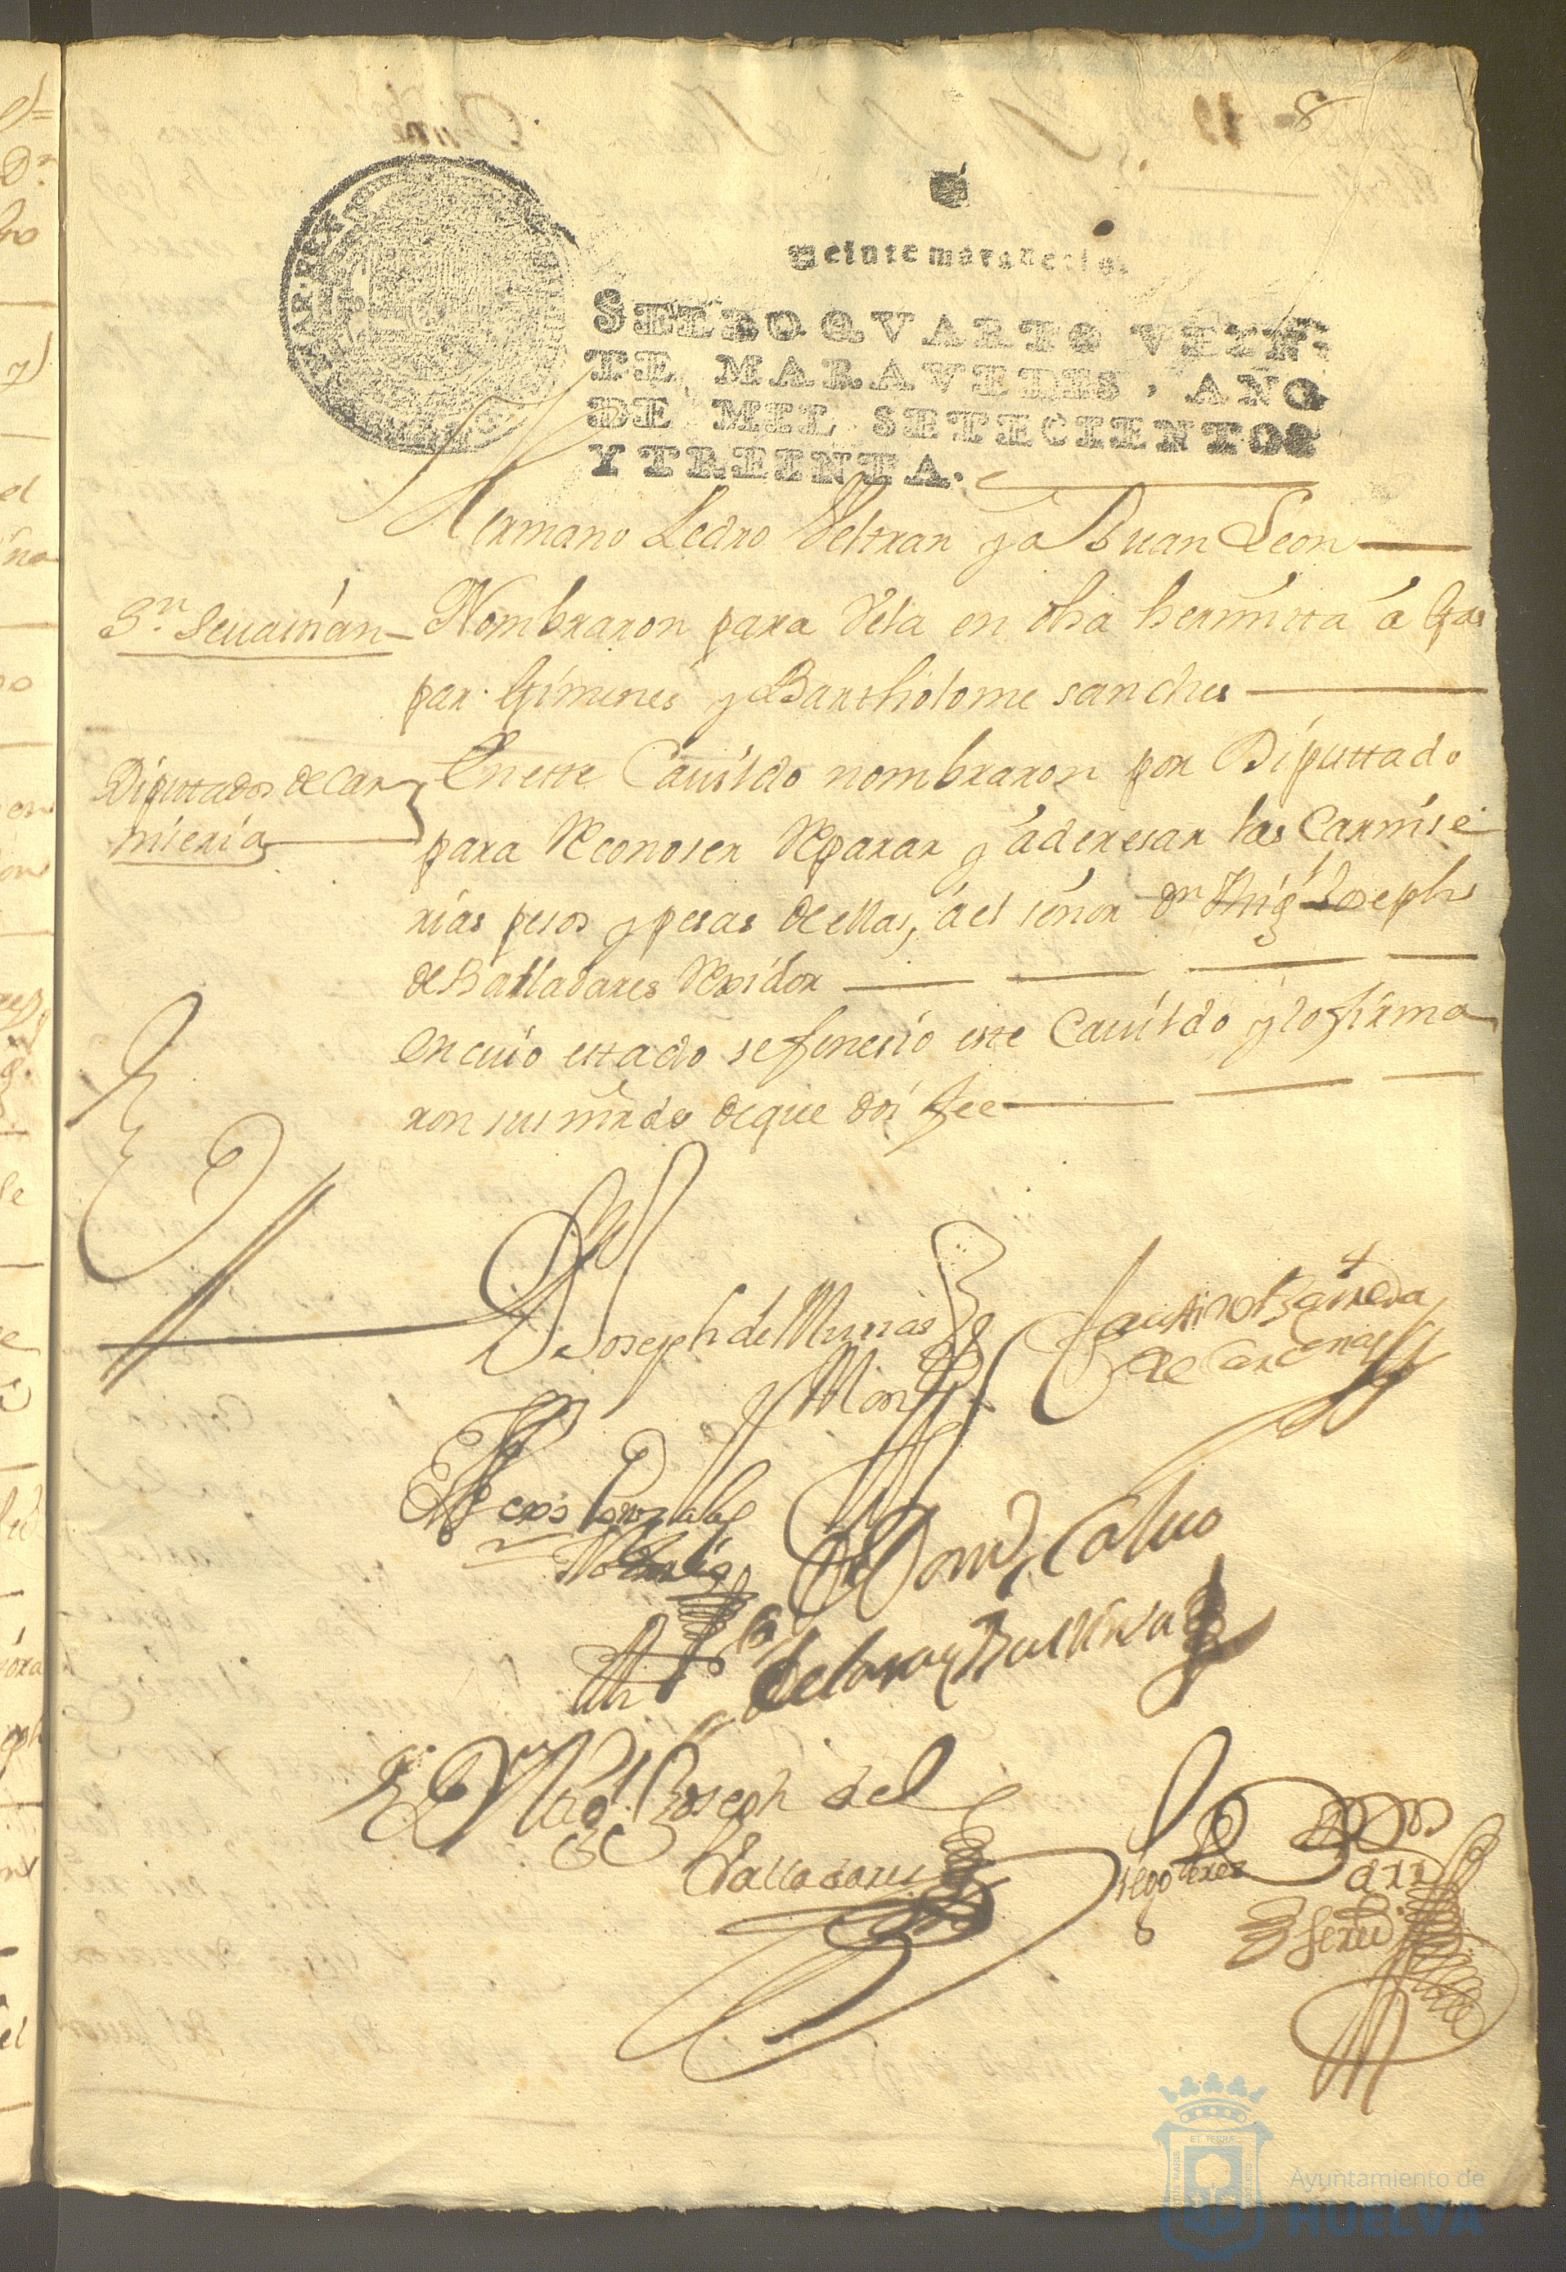 8
Veinte maravedis.
SELLO QVARTO, VEIN-
TE MARAVEDIS, AÑO
DE MIL SETECIENTOS
Y TREINTA.
Hermano Pedro Beltran y a Juan Leon
Sn. Seuastian
Nombraron para dela en dha hermitta á Gas
par Giménes y a Bartholome sanches
Diputtados de Car
niseria
En este Cauildo nombraron por Diputtado
para Reconoser Reparar y aderesar las Carnise
rias pesos y pesas de ellas, a el señor Dn Migl Joseph
de Balladares Rexidor
en cuio estado se fenesio este Cauildo y lo firma
ron sus mrds de que doi fee
Dn Joseph de
Faustino Barreda
de Cardenas
Alexo Gonzales
Domgo Caluo
Dn Migl Joseph de
Valladares
Diego Perez
Ayuntamiento de
HUELVA